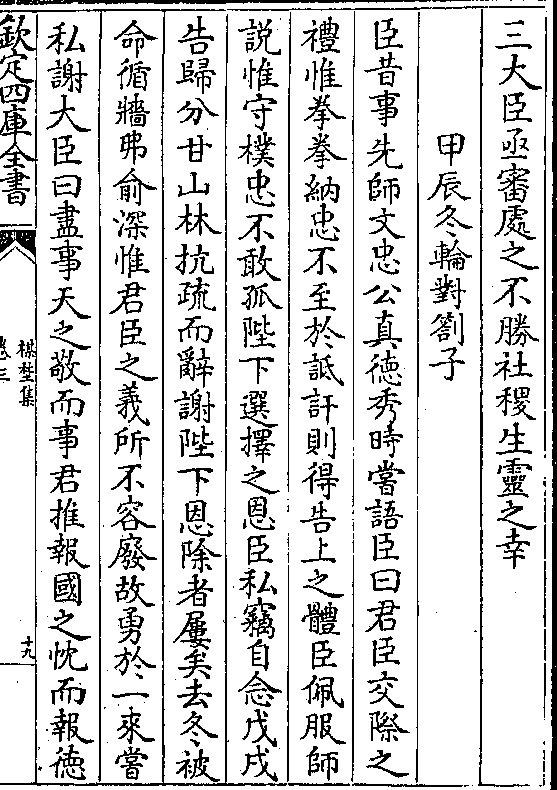 三大臣亟審處之不勝社稷生靈之幸
甲辰冬輪對劄子
臣昔事先師文忠公真徳秀時嘗語臣曰君臣交際之
禮惟拳拳納忠不至於詆訐則得告上之體臣佩服師
説惟守樸忠不敢孤陛下選擇之恩臣私竊自念戊戌
告歸分甘山林抗疏而辭謝陛下恩除者屢矣去冬被
命循牆弗俞深惟君臣之義所不容廢故勇於一來嘗
私謝大臣曰盡事天之敬而事君推報國之忱而報徳
欽定四庫全書
楳埜集
卷三
十九